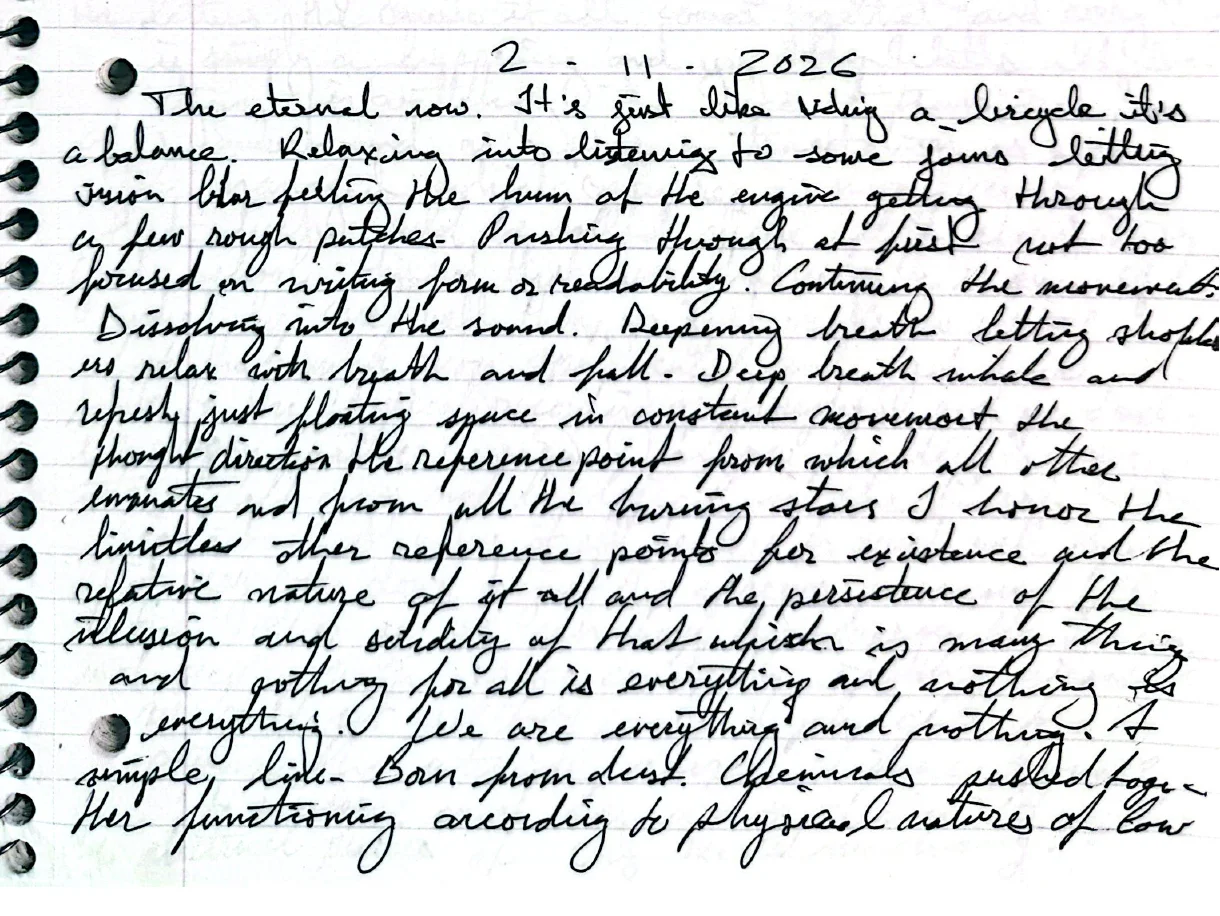 2 - 11 - 2026
The eternal now. It's just like riding a bicycle it's
a balance. Relaxing into listening to some jams letting
vision blur feeling the hum of the engine getting through
a few rough patches. Pushing through at first not too
focused on writing form or readability. Continuing the movement.
Dissolving into the sound. Deepening breath letting should
ers relax with breath and fall. Deep breath inhale and
refresh just floating space in constant movement the
thought direction the reference point from which all other
emanates and from all the burning stars I honor the
limitless other reference points for existence and the
relative nature of it all and the persistence of the
illusion and solidity of that which is many things
and nothing for all is everything and nothing is
everything. We are everything and nothing. A
simple line. Born from dust. Chemicals pushed toge-
ther functioning according to physical natures of law